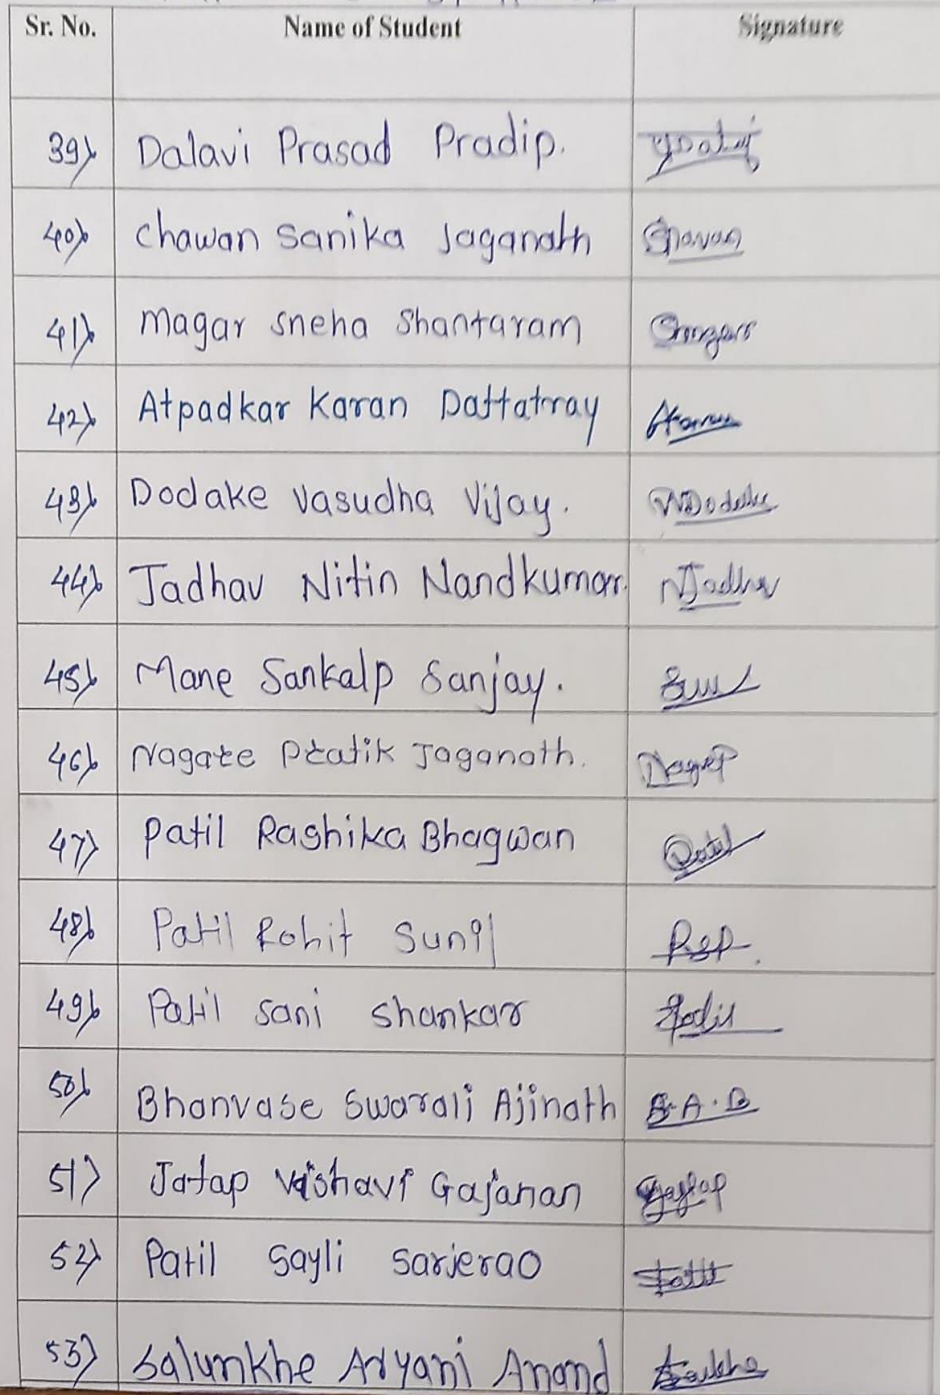 Sr. No. Name of Student Signature
39) Dalavi Prasad Pradip.
40) Chawan Sanika Jaganath Chavan
41) Magar Sneha Shantaram
42) Atpadkar Karan Dattatray
43) Dodake Vasudha Vijay. VDodake
44) Jadhav Nitin Nandkumar. NJadhav
45) Mane Sankalp Sanjay.
46) Nagare Pratik Jaganath.
47) Patil Rashika Bhagwan Patil
48) Patil Rohit Sunil RSP.
49) Patil Sani Shankar
50) Bhanvase Swarali Ajinath B.A.B
51) Jatap Vaishavi Gajanan
52) Patil Sayli Sarjerao
53) Salunkhe Aryani Anand